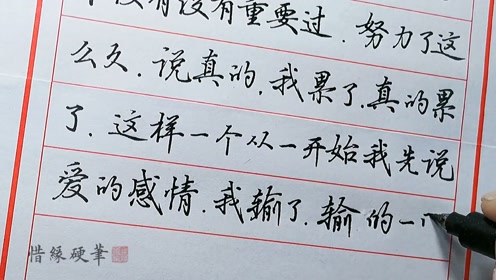 没有没有重要过.努力了这
么久.说真的,我累了.真的累
了.这样一个从一开始我先说
爱的感情.我输了.输的一
惜緣硬筆